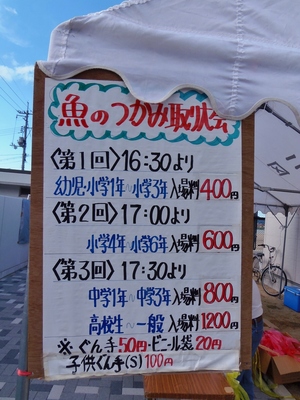 魚のつかみ取り大会
〈第1回〉16:30より
幼児・小学1年〜小学3年 入場料400円
〈第2回〉17:00より
小学4年〜小学6年 入場料600円
〈第3回〉17:30より
中学1年〜中学3年 入場料800円
高校生〜一般 入場料1200円
※ぐん手50円・ビニール袋20円
子供ぐん手(S)100円